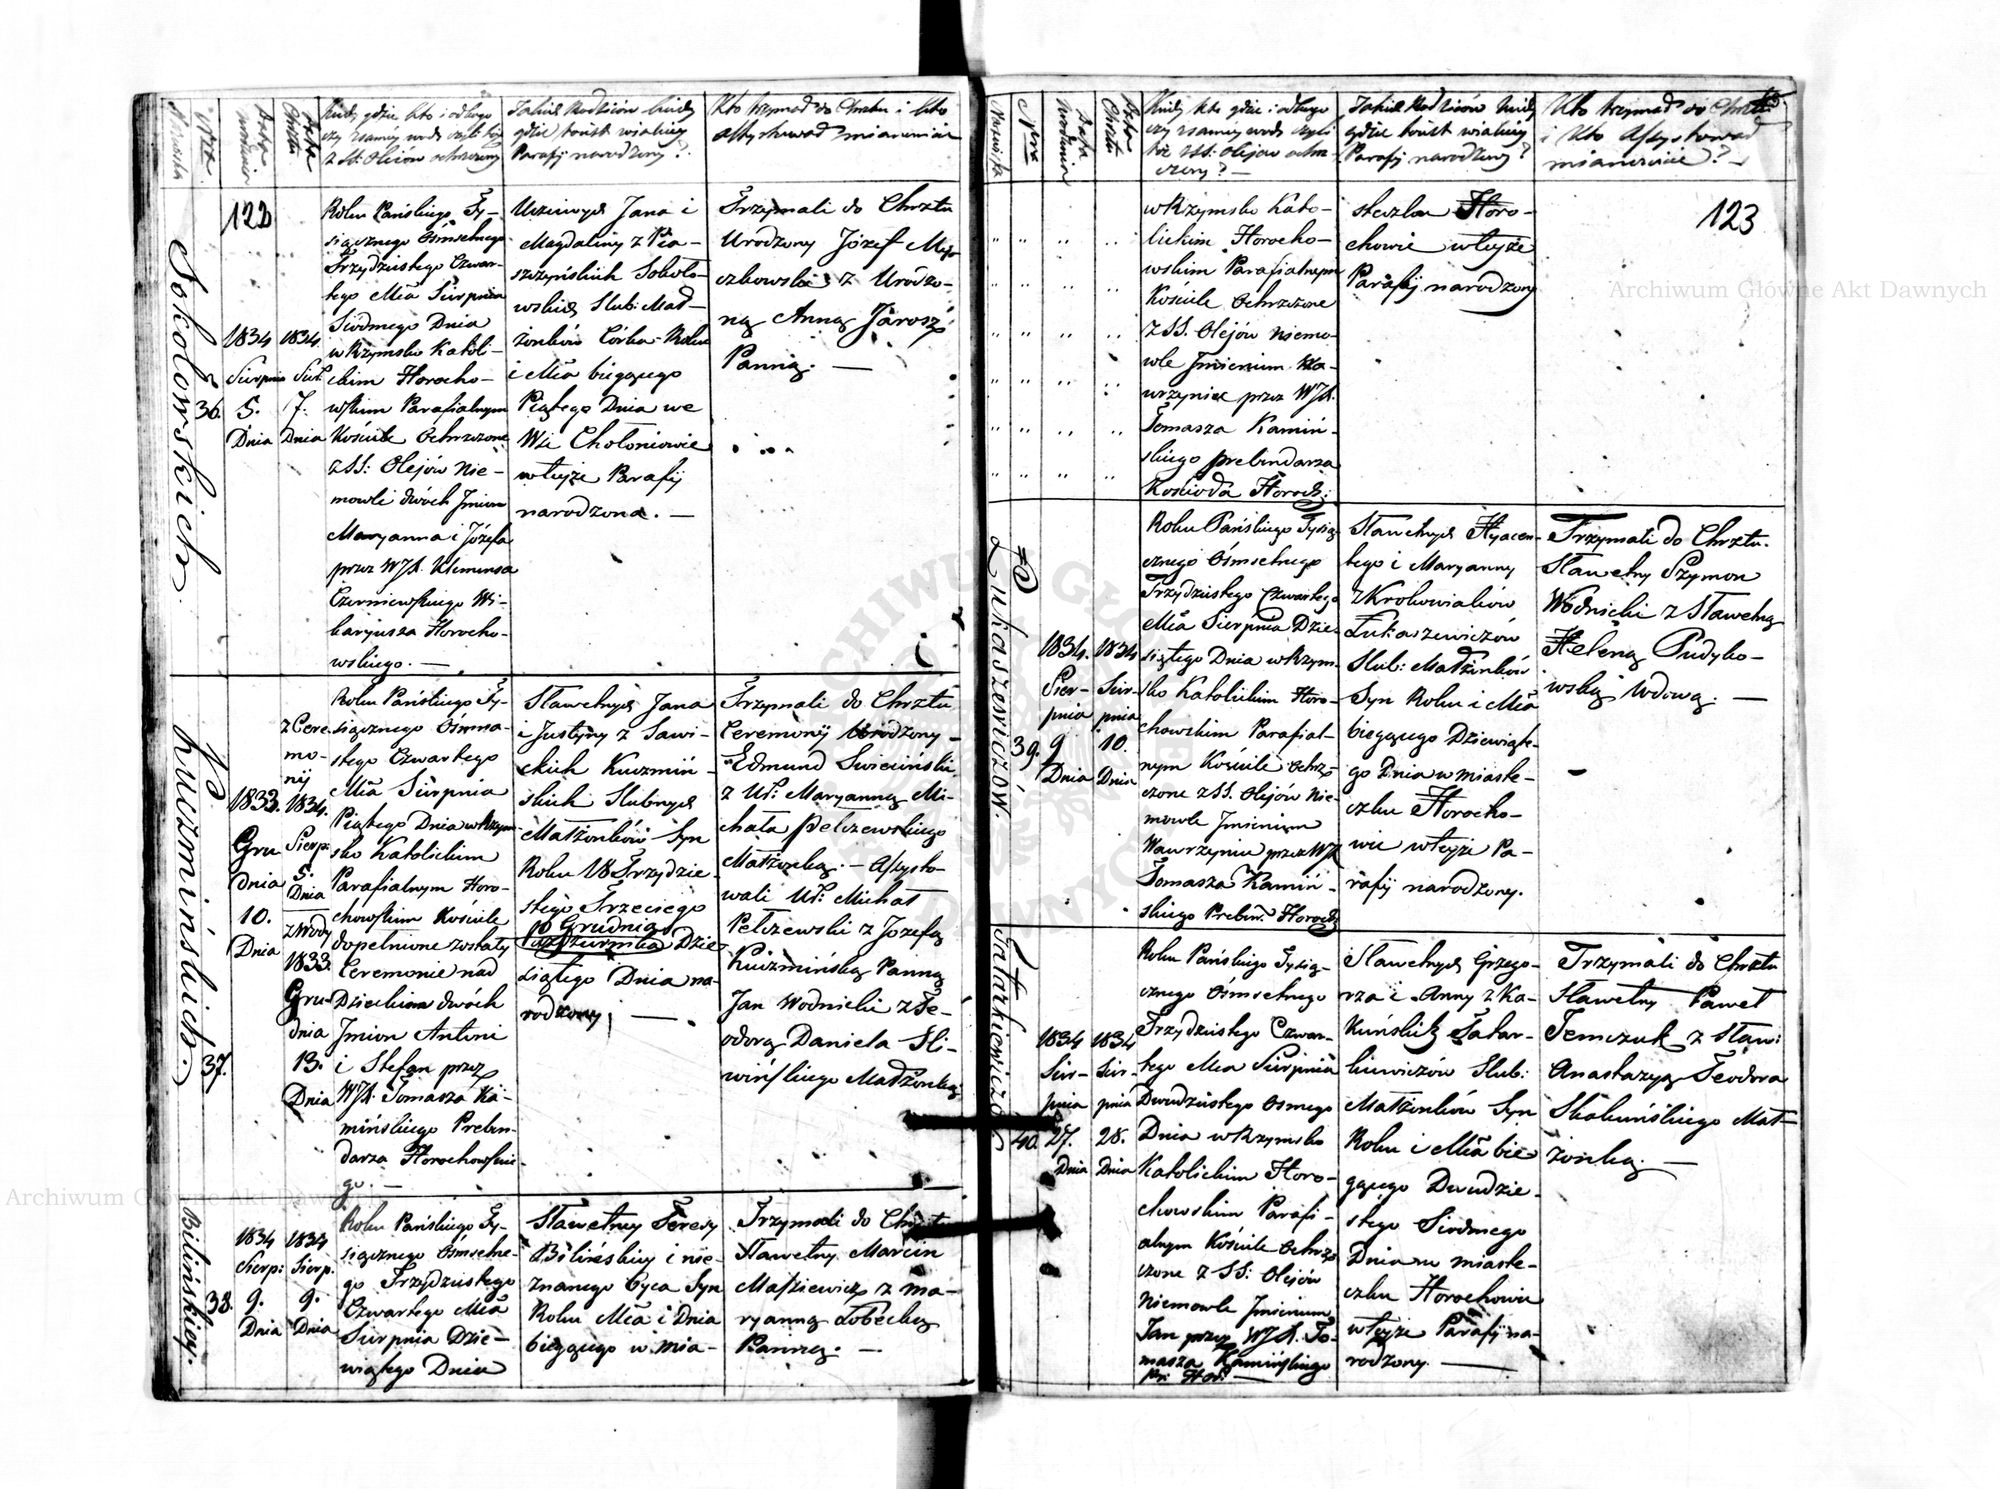 Nazwiska
Nra
Data urodzenia
Data Chrztu
Kiedy gdzie kto i od kogo
czy z samej wody czyli też
z SS: Olejów ochrzczony
Jakich Rodziców kiedy
gdzie tudzież w jakiej
Parafij narodzony?
Kto trzymał do Chrztu i kto
assystował mianowicie
Sokołowskich.
122
36.
1834
Sierpnia
5.
Dnia
1834
Sier.
7.
Dnia
Roku Pańskiego Ty-
siącznego Ośmsetnego
Trzydziestego Czwar-
tego Mca Sierpnia
Siódmego Dnia
w Rzymsko Katoli-
ckim Horocho-
wskim Parafialnym
Kościele Ochrzczone
z SS: Olejów Nie-
mowle dwóch Jmion
Maryanna i Józefa
przez WJX. Klemensa
Czerniewskiego Wi-
karyusza Horocho-
wskiego. —
Uczciwych Jana i
Magdaliny z Pia-
szczyńskich Sokoło-
wskich Slub: Mał-
żonków Córka Roku
i Mca bieżącego
Piątego Dnia we
Wsi Chołoniowie
w tejże Parafij
narodzona. —
Trzymali do Chrztu
Urodzony Józef
czkowski z Urodzo-
ną Anną Jarosz
Panną. —
Kuzmińskich.
37.
1833.
Gru
dnia
10.
Dnia
z Cere-
mo-
nij
1834.
Sierp:
5.
Dnia
z Wody
1833.
Gru-
dnia
13.
Dnia
Roku Pańskiego Ty-
siącznego Ośmna-
stego Czwartego
Mca Sierpnia
Piątego Dnia w Rzym-
sko Katolickim
Parafialnym Horo-
chowskim Kościele
dopełnione zostały
Ceremonie nad
Dzieckiem dwóch
Jmion Antoni
i Stefan przez
WJX. Tomasza Ka-
mińskiego Preben-
darza Horochowskie-
go. —
Sławetnych Jana
i Justyny z Sawi-
ckich Kuzmiń-
skich Slubnych
Małżonków Syn
Roku 18 Trzydzie-
stego Trzeciego
10 Grudnia
Października Dzie-
siątego Dnia na-
rodzony. —
Trzymali do Chrztu
Ceremonij Urodzony
Edmund Swieciński
z Ur: Maryanną Mi-
chała Pełczewskiego
Małżonką. — Assysto-
wali Ur: Michał
Pełczewski z Józefą
Kuzmińską Panną
Jan Wodnicki z Te-
odorą Daniela Sli-
wińskiego Małżonką.
Bilińskiey.
38.
1834
Sierp:
9.
Dnia
1834
Sierp.
9.
Dnia
Roku Pańskiego Ty-
siącznego Ośmsetne-
go Trzydziestego
Czwartego Mca
Sierpnia Dzie-
wiątego Dnia
Sławetney Teresy
Bilińskiey i nie-
znanego Oyca Syn
Roku Mca i Dnia
bieżącego w mia-
Trzymali do Chrztu
Sławetny Marcin
Matkiewicz z Ma-
ryanną Łobecką
Panną. —
Nazwiska
Nra
Data urodzenia
Data Chrztu
Kiedy kto gdzie i od kogo
czy z samej wody czyli
też z SS: Olejów ochrz-
czony? —
Jakich Rodziców kiedy
gdzie tudzież w jakiej
Parafij narodzony?
Kto trzymał do Chrztu
i kto Assystował
mianowicie? —
123
w Rzymsko Kato-
lickim Horocho-
wskim Parafialnym
Kościele Ochrzczone
z SS. Olejów Niemo-
wle Jmieniem Wa-
wrzyniec przez WJX.
Tomasza Kamiń-
skiego prebendarza
Kościoła Horoch:
steczku Horo-
chowie w tejże
Parafij narodzony
Łukaszewiczów.
39.
1834.
Sier-
pnia
9
Dnia
1834
Sier-
pnia
10.
Dnia
Roku Pańskiego Tysią-
cznego Ośmsetnego
Trzydziestego Czwartego
Mca Sierpnia Dzie-
siątego Dnia w Rzym-
sko Katolickim Horo-
chowskim Parafial-
nym Kościele Ochrz-
czone z SS. Olejów Nie-
mowle Jmieniem
Wawrzyniec przez WJX
Tomasza Kamiń-
skiego Preben. Horoch:
Sławetnych Hyacen-
tego i Maryanny
z Krokowiaków
Łukaszewiczów
Slub: Małżonków
Syn Roku i Mca
bieżącego Dziewiąte-
go Dnia w miaste-
czku Horocho-
wie w tejże Pa-
rafij narodzony.
Trzymali do Chrztu.
Sławetny Szymon
Wodnicki z Sławetną
Heleną Pudyko-
wską Wdową. —
Tatarkiewiczów
40.
1834
Sier-
pnia
27.
Dnia
1834
Sier-
pnia
28.
Dnia
Roku Pańskiego Tysią-
cznego Ośmsetnego
Trzydziestego Czwar-
tego Mca Sierpnia
Dwudziestego Osmego
Dnia w Rzymsko
Katolickim Horo-
chowskim Parafi-
alnym Kościele Ochrz-
czone z SS: Olejów
Niemowle Jmieniem
Jan przez WJX. To-
masza Kamińskiego
Pr: Hor: —
Sławetnych Grzego-
rza i Anny z Ka-
kuńskich Tatar-
kiewiczów Slub:
Małżonków Syn
Roku i Mca bie-
żącego Dwudzie-
stego Siódmego
Dnia w miaste-
czku Horochowie
w tejże Parafij na-
rodzony. —
Trzymali do Chrztu
Sławetny Paweł
Temczuk z Sław:
Anastazyą Teodora
Skakuńskiego Mał-
żonką. —
Archiwum Główne Akt Dawnych
Archiwum Główne Akt Dawnych
ARCHIWUM GŁÓWNE AKT DAWNYCH